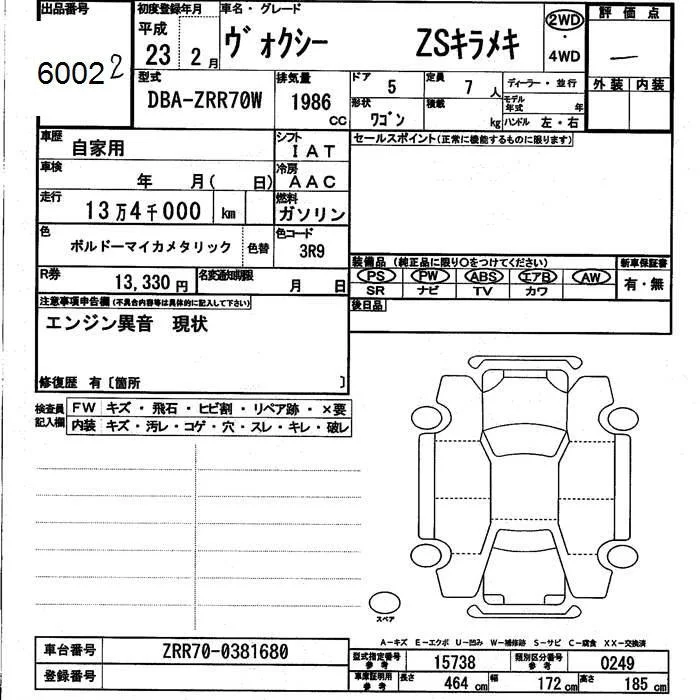 出品番号
60022
初度登録年月
平成
23 2月
車名・グレード
ヴォクシー ZSキラメキ
2WD
・
4WD
評価点
―
外装 内装
型式
DBA-ZRR70W
排気量
1986
CC
ドア 5
定員 7人
形状 ワゴン
積載 kg
ディーラー・並行
モデル年式 年
ハンドル 左・右
車歴 自家用
シフト IAT
セールスポイント(正常に機能するものに限ります)
車検 年 月( 日)
冷房 AAC
走行 13万4千000 km
燃料 ガソリン
色 ボルドーマイカメタリック 色替
色コード 3R9
装備品 (純正品に限り○をつけてください)
PS PW ABS エアB AW
SR ナビ TV カワ
新車保証書
有・無
R券 13,330円
名変通知期限 月 日
後日品
注意事項申告欄(不具合内容等は具体的に記入して下さい)
エンジン異音 現状
修復歴 有〔箇所 〕
検査員記入欄
FW キズ・飛石・ヒビ割・リペア跡・×要
内装 キズ・汚レ・コゲ・穴・スレ・キレ・破レ
スペア
A-キズ E-エクボ U-凹み W-補修跡 S-サビ C-腐食 XX-交換済
車台番号 ZRR70-0381680
登録番号
型式指定番号参考 15738
類別区分番号参考 0249
車庫証明用参考
長さ 464cm 幅 172cm 高さ 185cm